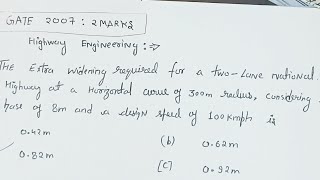 GATE 2007 : 2 MARKS
Highway Engineering :->
The Extra widening required for a two-Lane national
Highway at a Horizontal curve of 300m radius, considering
base of 8m and a design speed of 100 kmph is
0.42m (b) 0.62m
0.82m [C] 0.92m